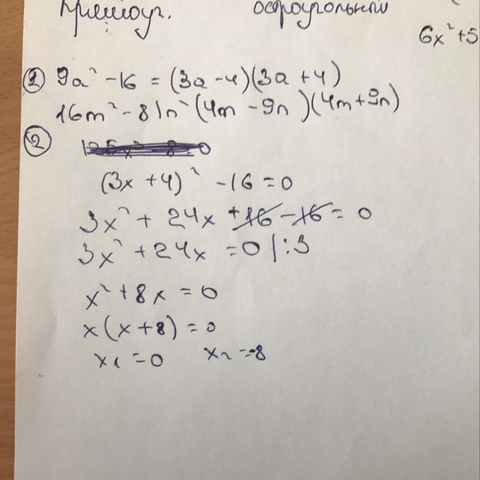 Прямоуг. остроугольный
6x²+5
① 9a²-16 = (3a-4)(3a+4)
16m²-81n² (4m-9n)(4m+9n)
②
(3x+4)²-16=0
3x²+24x+16-16=0
3x²+24x=0 |:3
x²+8x=0
x(x+8)=0
x₁=0 x₂=-8